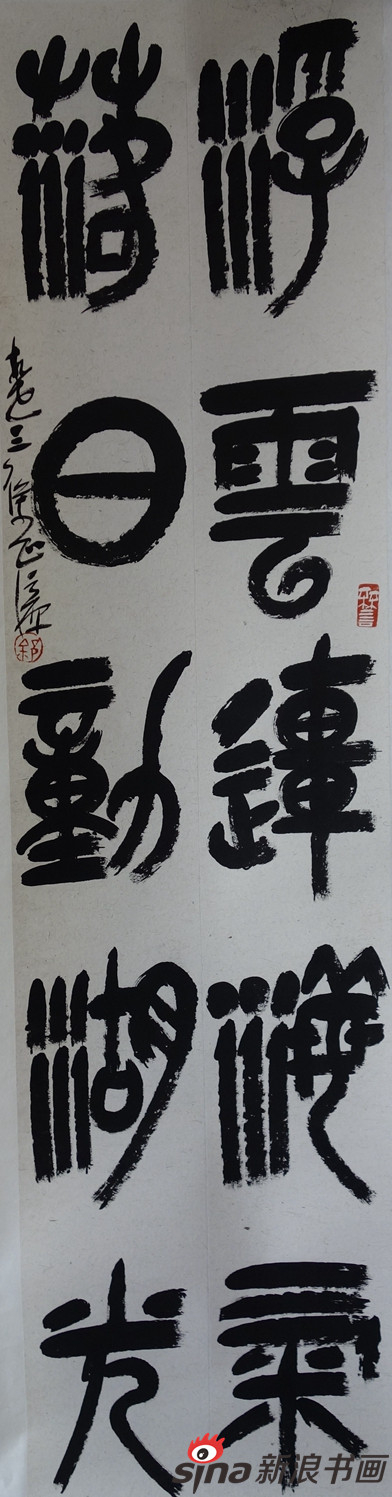 浮雲連海氣
落日動湖光
三徐正濂
sina新浪书画